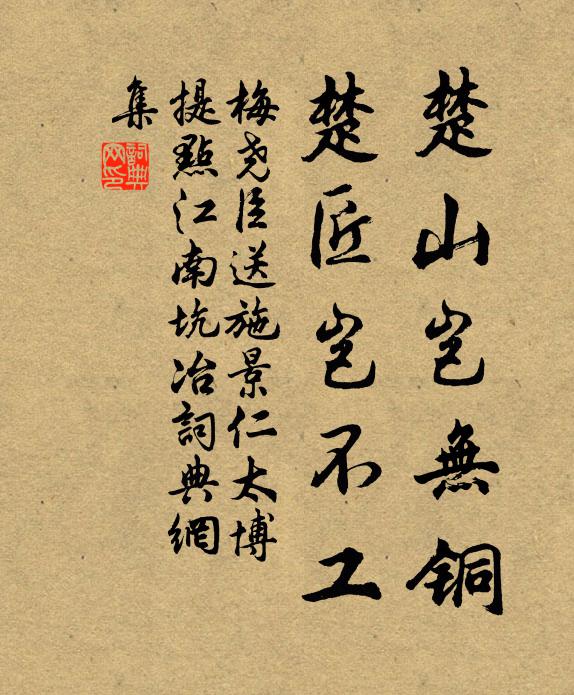 楚山岂無铜
楚匠岂不工
梅尧臣送施景仁太博
提點江南坑冶詞典網
集
詞典网印